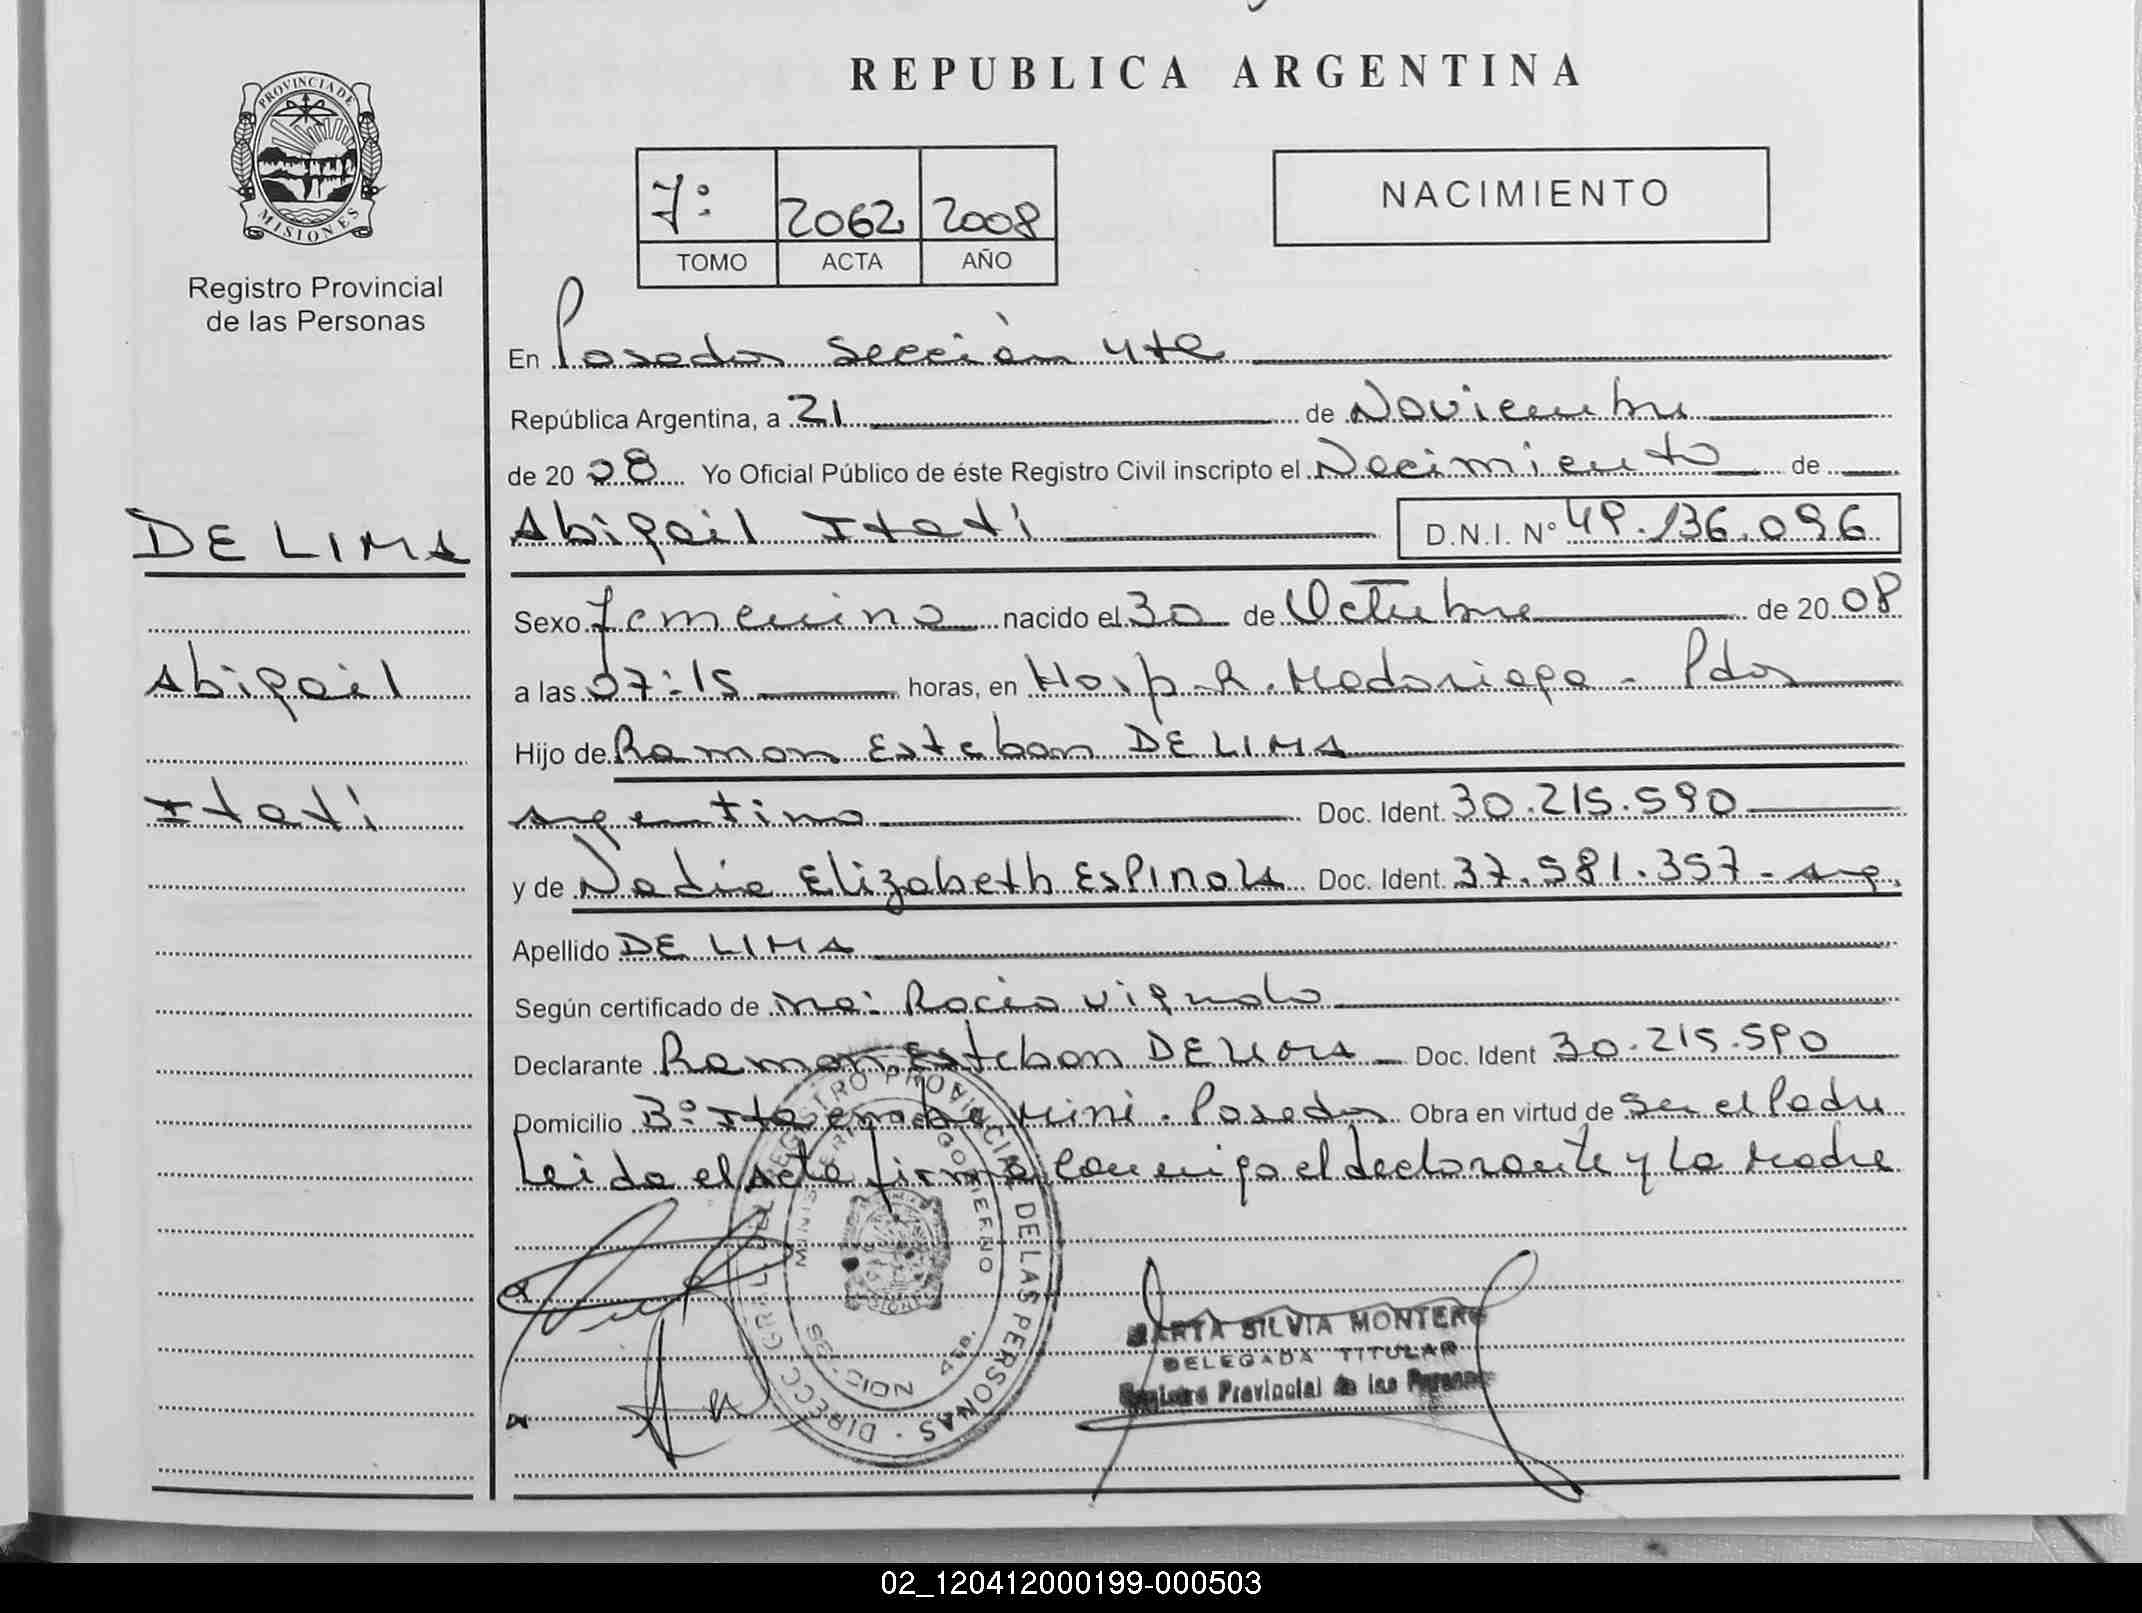 REPUBLICA ARGENTINA
PROVINCIA DE
MISIONES
Registro Provincial
de las Personas
7º 2062 2008
TOMO ACTA AÑO
NACIMIENTO
En Posadas Sección 4ta
República Argentina, a 21 de Noviembre
de 2008 Yo Oficial Público de éste Registro Civil inscripto el Nacimiento de
DE LIMA
Abigail Itatí D.N.I. Nº 49.136.096
Sexo femenino nacido el 30 de Octubre de 2008
Abigail
a las 07:15 horas, en Hosp. R. Madariaga - Pdas
Hijo de Ramon Esteban DE LIMA
Itatí
argentino Doc. Ident. 30.215.590
y de Nadia Elizabeth ESPINOLA Doc. Ident. 37.581.357 - arg.
Apellido DE LIMA
Según certificado de Rocio Vignolo
Declarante Ramon Esteban DE LIMA Doc. Ident 30.215.590
Domicilio Bº Itaembe Mini - Posadas Obra en virtud de Ser el Padre
Leida el acta firma conmigo el declarante y la Madre
DIRECC. GRAL. DEL REGISTRO PROVINCIAL DE LAS PERSONAS
MINISTERIO GOBIERNO
MARTA SILVIA MONTERO
DELEGADA TITULAR
Registro Provincial de las Personas
02_120412000199-000503